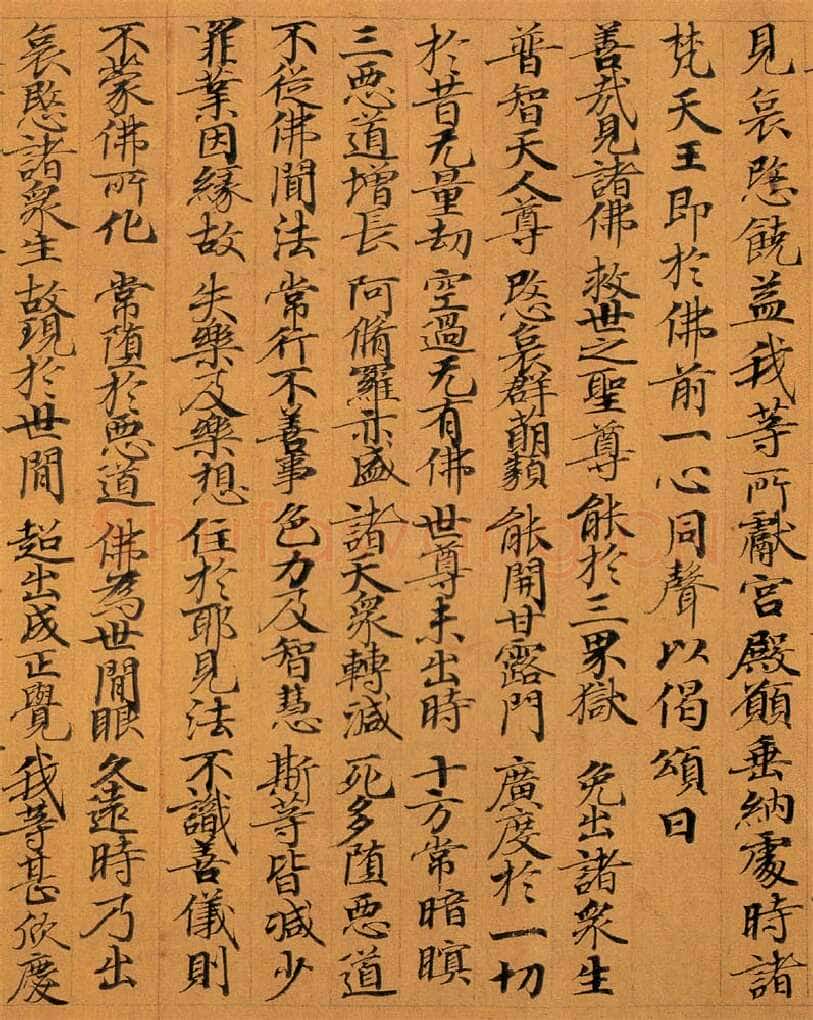 見哀愍饒益我等所獻宮殿願垂納處時諸
梵天王即於佛前一心同聲以偈頌曰
善哉見諸佛 救世之聖尊 能於三界獄 免出諸眾生
普智天人尊 愍哀群萌類 能開甘露門 廣度於一切
於昔无量劫 空過无有佛 世尊未出時 十方常暗瞑
三惡道增長 阿脩羅亦盛 諸天眾轉減 死多墮惡道
不從佛聞法 常行不善事 色力及智慧 斯等皆減少
罪業因緣故 失樂及樂想 住於耶見法 不識善儀則
不蒙佛所化 常墮於惡道 佛為世間眼 久遠時乃出
哀愍諸眾生 故現於世間 超出成正覺 我等甚欣慶